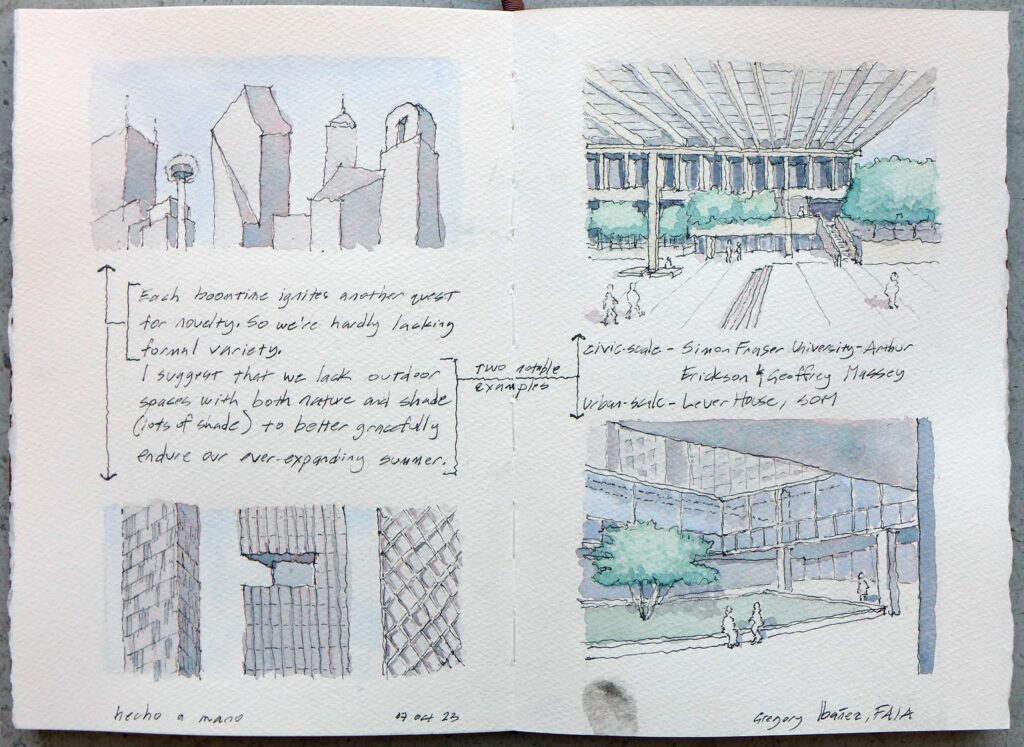 Each boomtime ignites another quest
for novelty. So we're hardly lacking
formal variety.
I suggest that we lack outdoor
spaces with both nature and shade
(lots of shade) to better gracefully
endure our ever-expanding summer.
two notable
examples
civic-scale - Simon Fraser University - Arthur
Erickson & Geoffrey Massey
urban-scale - Lever House, SOM
hecho a mano
07 oct 23
Gregory Ibáñez, FAIA